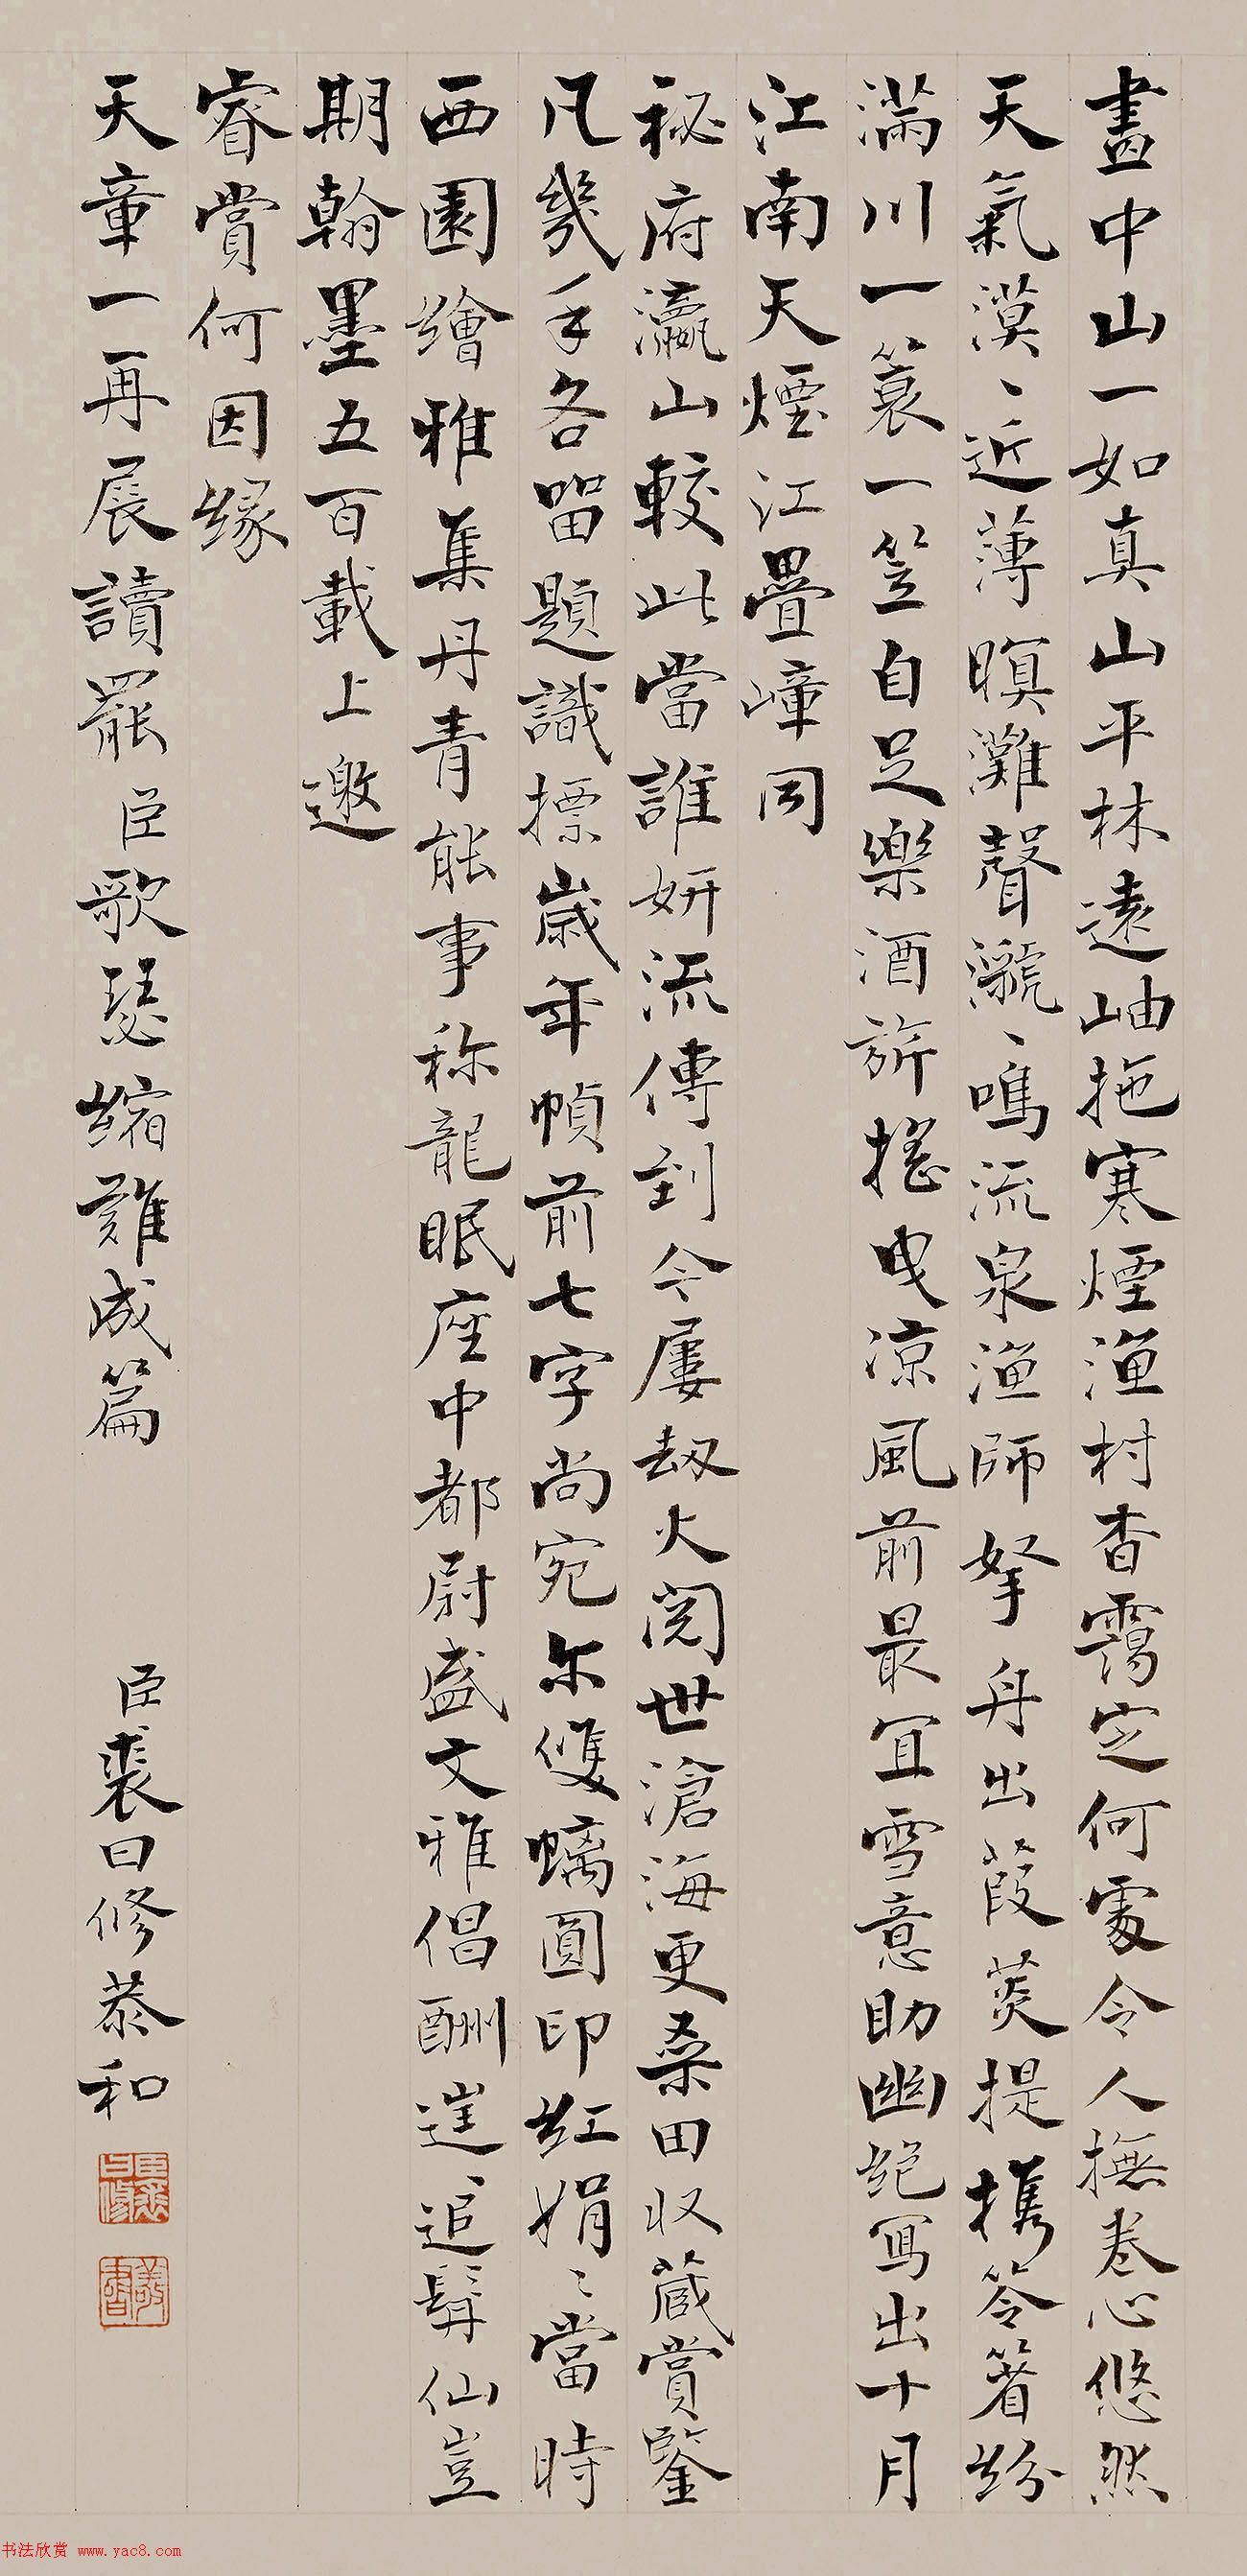 畫中山一如真山平林遠岫拖寒煙漁村杳靄定何處令人撫卷心悠然
天氣漠、近薄暝灘聲㶁、鳴流泉漁師拏舟出葭菼提携笭箵紛
滿川一簑一笠自足樂酒旂搖曳涼風前最宜雪意助幽絕寫出十月
江南天煙江疊嶂同
秘府瀛山較此當誰妍流傳到今屢劫火閱世滄海更桑田收藏賞鑒
凡幾手各留題識摽歲年幀前七字尚宛尔雙螭圓印紅娟〻當時
西園繪雅集丹青能事称龍眠座中都尉盛文雅倡酬逹追髯仙豈
期翰墨五百載上邀
睿賞何因緣
天章一再展讀罷臣歌瑟縮難成篇
臣裘曰修恭和
臣裘曰修
敬書
书法欣赏 www.yac8.com